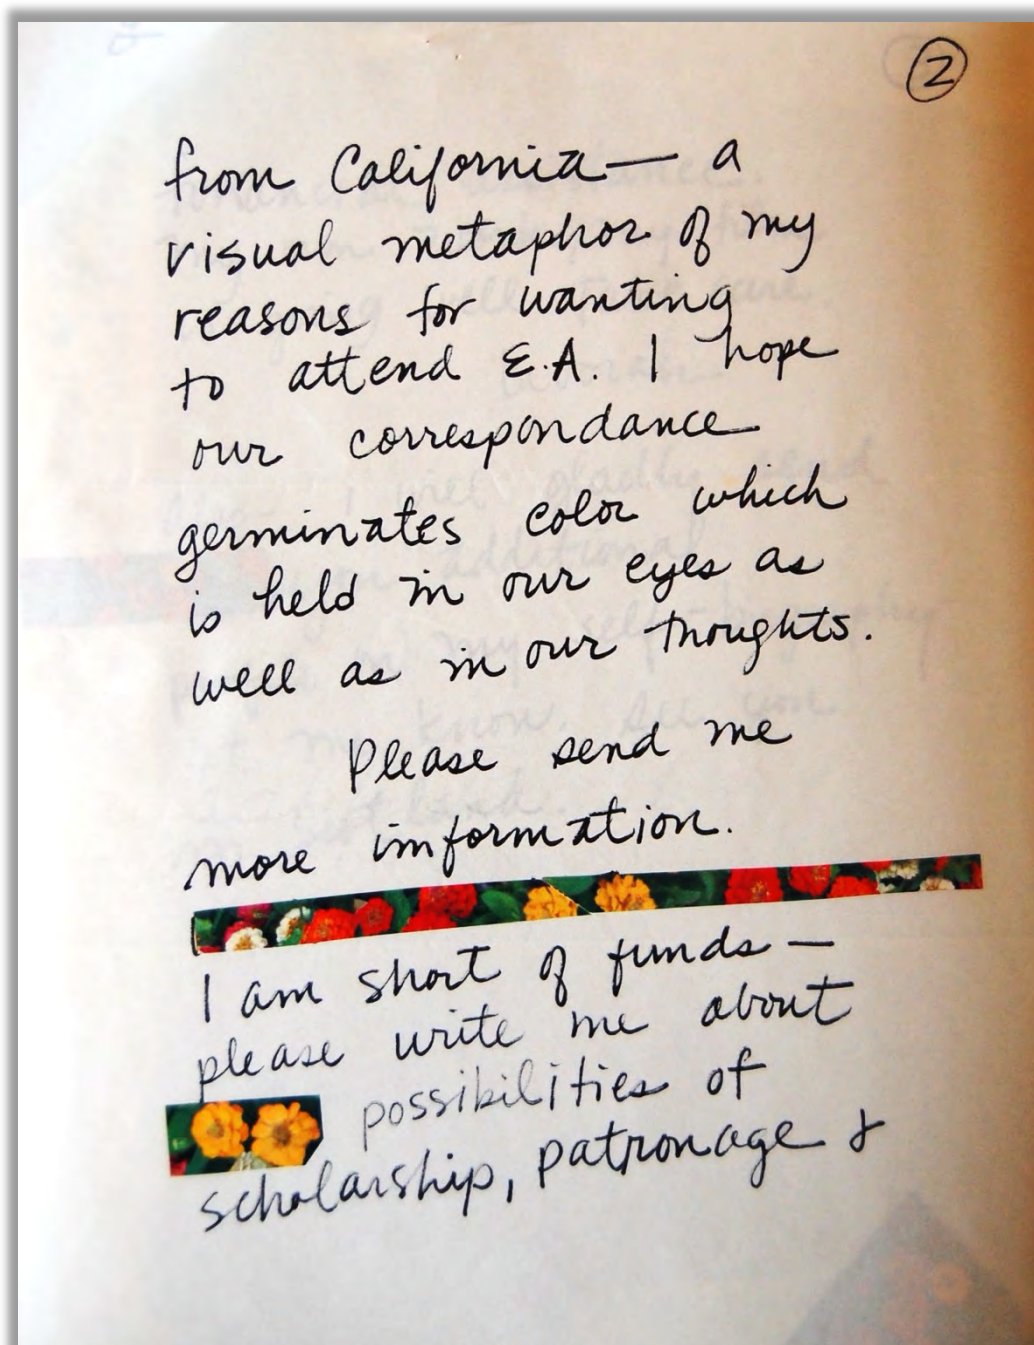 2
from California — a
visual metaphor of my
reasons for wanting
to attend E.A. I hope
our correspondance
germinates color which
is held in our eyes as
well as in our thoughts.
Please send me
more information.
I am short of funds —
please write me about
possibilities of
scholarship, patronage &